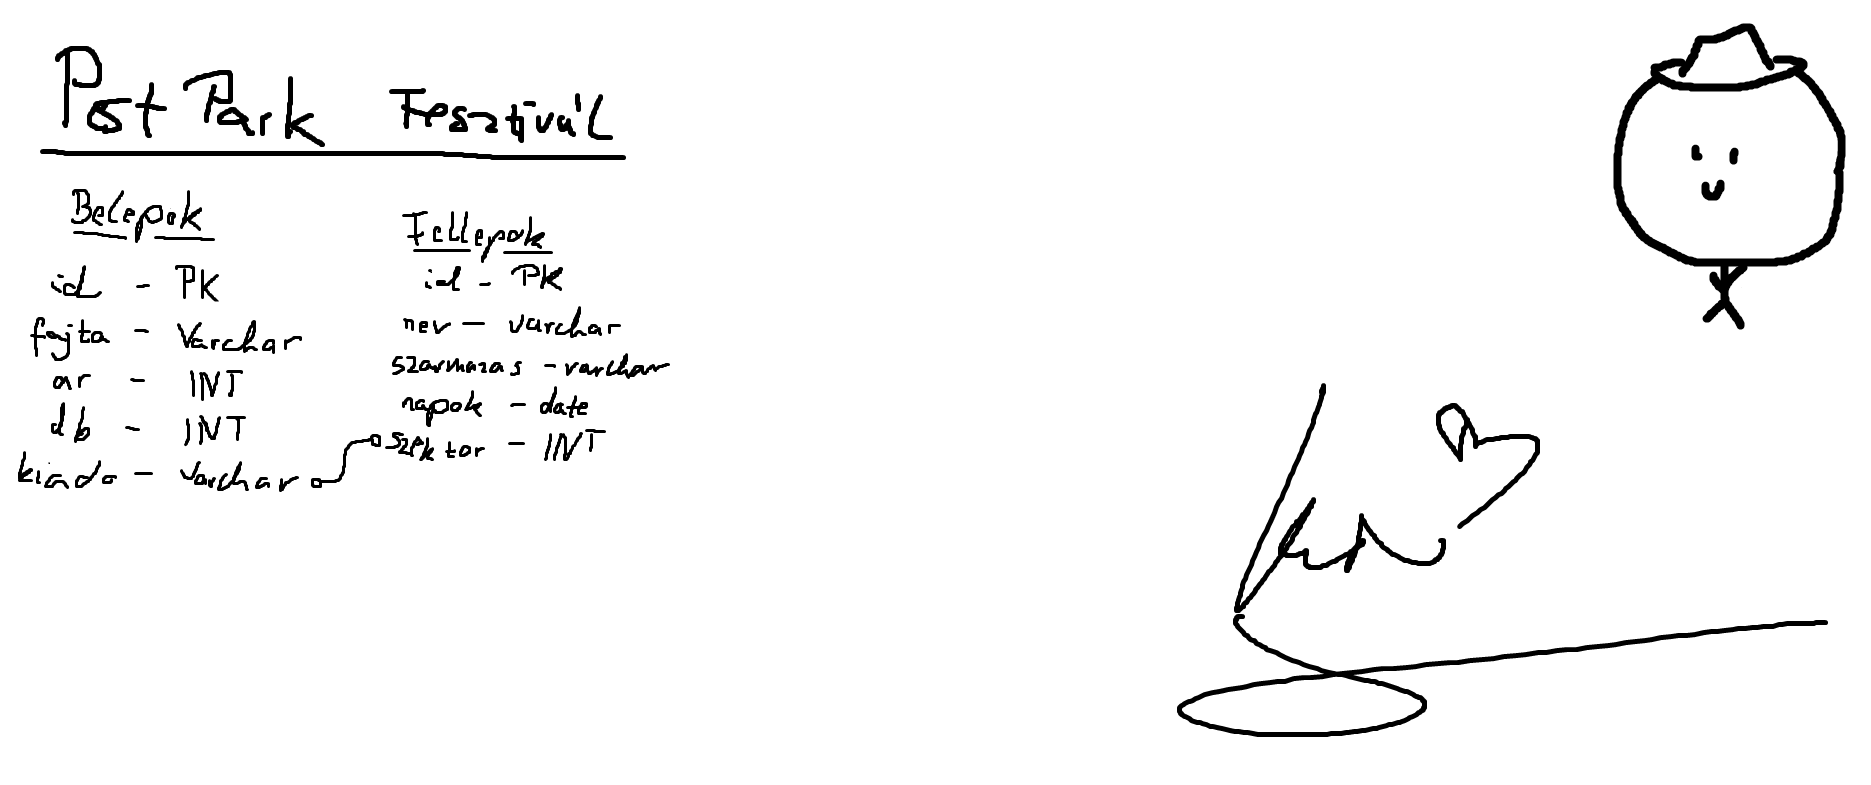 Post Park Fesztivál
Belepok
id - PK
fajta - Varchar
ar - INT
db - INT
kiado - varchar
Fellepok
id - PK
nev - varchar
szarmazas - varchar
napok - date
szektor - INT